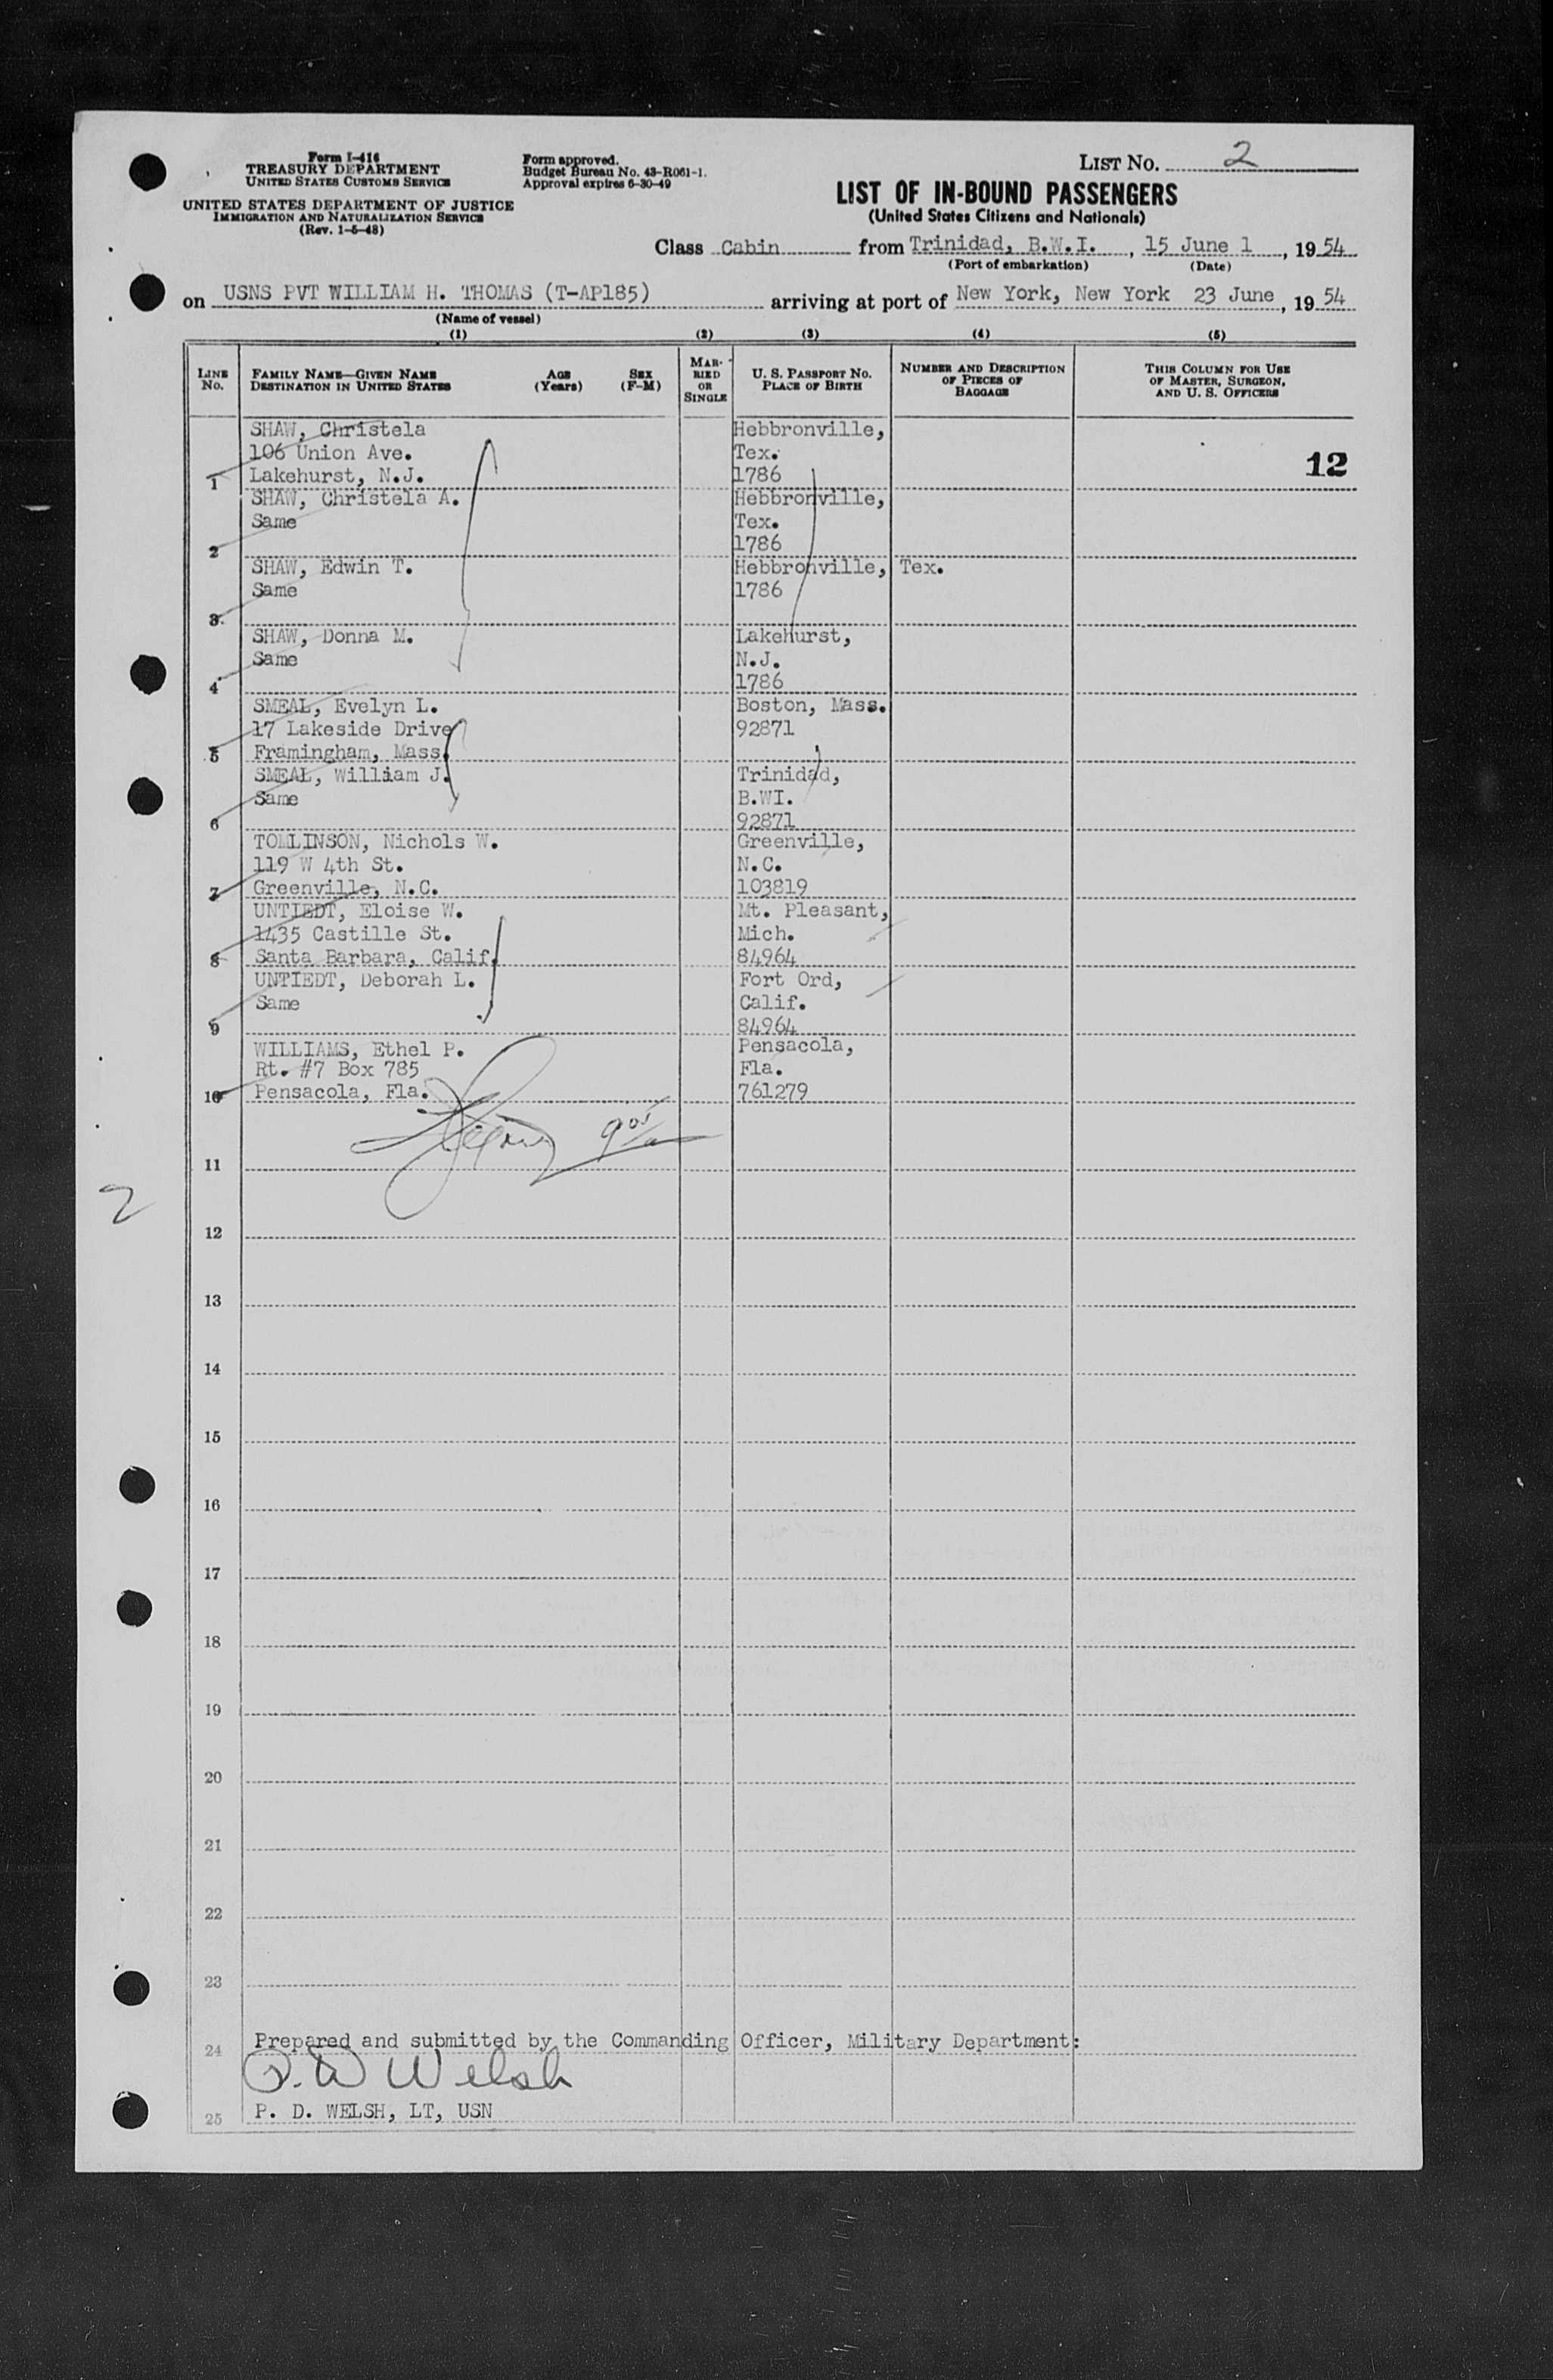 Form I-416
TREASURY DEPARTMENT
UNITED STATES CUSTOMS SERVICE
UNITED STATES DEPARTMENT OF JUSTICE
IMMIGRATION AND NATURALIZATION SERVICE
(Rev. 1-5-48)
Form approved.
Budget Bureau No. 43-R061-1.
Approval expires 6-30-49
LIST NO. 2
LIST OF IN-BOUND PASSENGERS
(United States Citizens and Nationals)
Class Cabin from Trinidad, B.W.I. , 15 June 1 , 19 54
(Port of embarkation) (Date)
on USNS PVT WILLIAM H. THOMAS (T-AP185) arriving at port of New York, New York 23 June , 19 54
(Name of vessel)
(1) (2) (3) (4) (5)
LINE No.
FAMILY NAME—GIVEN NAME
DESTINATION IN UNITED STATES
AGE (Years)
SEX (F-M)
MARRIED OR SINGLE
U. S. PASSPORT NO.
PLACE OF BIRTH
NUMBER AND DESCRIPTION OF PIECES OF BAGGAGE
THIS COLUMN FOR USE OF MASTER, SURGEON, AND U. S. OFFICERS
SHAW, Christela Hebbronville,
106 Union Ave. Tex.
1 Lakehurst, N.J. 1786 12
SHAW, Christela A. Hebbronville,
Same Tex.
2 1786
SHAW, Edwin T. Hebbronville, Tex.
Same 1786
3
SHAW, Donna M. Lakehurst,
Same N.J.
4 1786
SMEAL, Evelyn L. Boston, Mass.
17 Lakeside Drive 92871
5 Framingham, Mass.
SMEAL, William J. Trinidad,
Same B.WI.
6 92871
TOMLINSON, Nichols W. Greenville,
119 W 4th St. N.C.
7 Greenville, N.C. 103819
UNTIEDT, Eloise W. Mt. Pleasant,
1435 Castille St. Mich.
8 Santa Barbara, Calif. 84964
UNTIEDT, Deborah L. Fort Ord,
Same Calif.
9 84964
WILLIAMS, Ethel P. Pensacola,
Rt. #7 Box 785 Fla.
10 Pensacola, Fla. 761279
11
2
12
13
14
15
16
17
18
19
20
21
22
23
24 Prepared and submitted by the Commanding Officer, Military Department:
P. D Welsh
25 P. D. WELSH, LT, USN